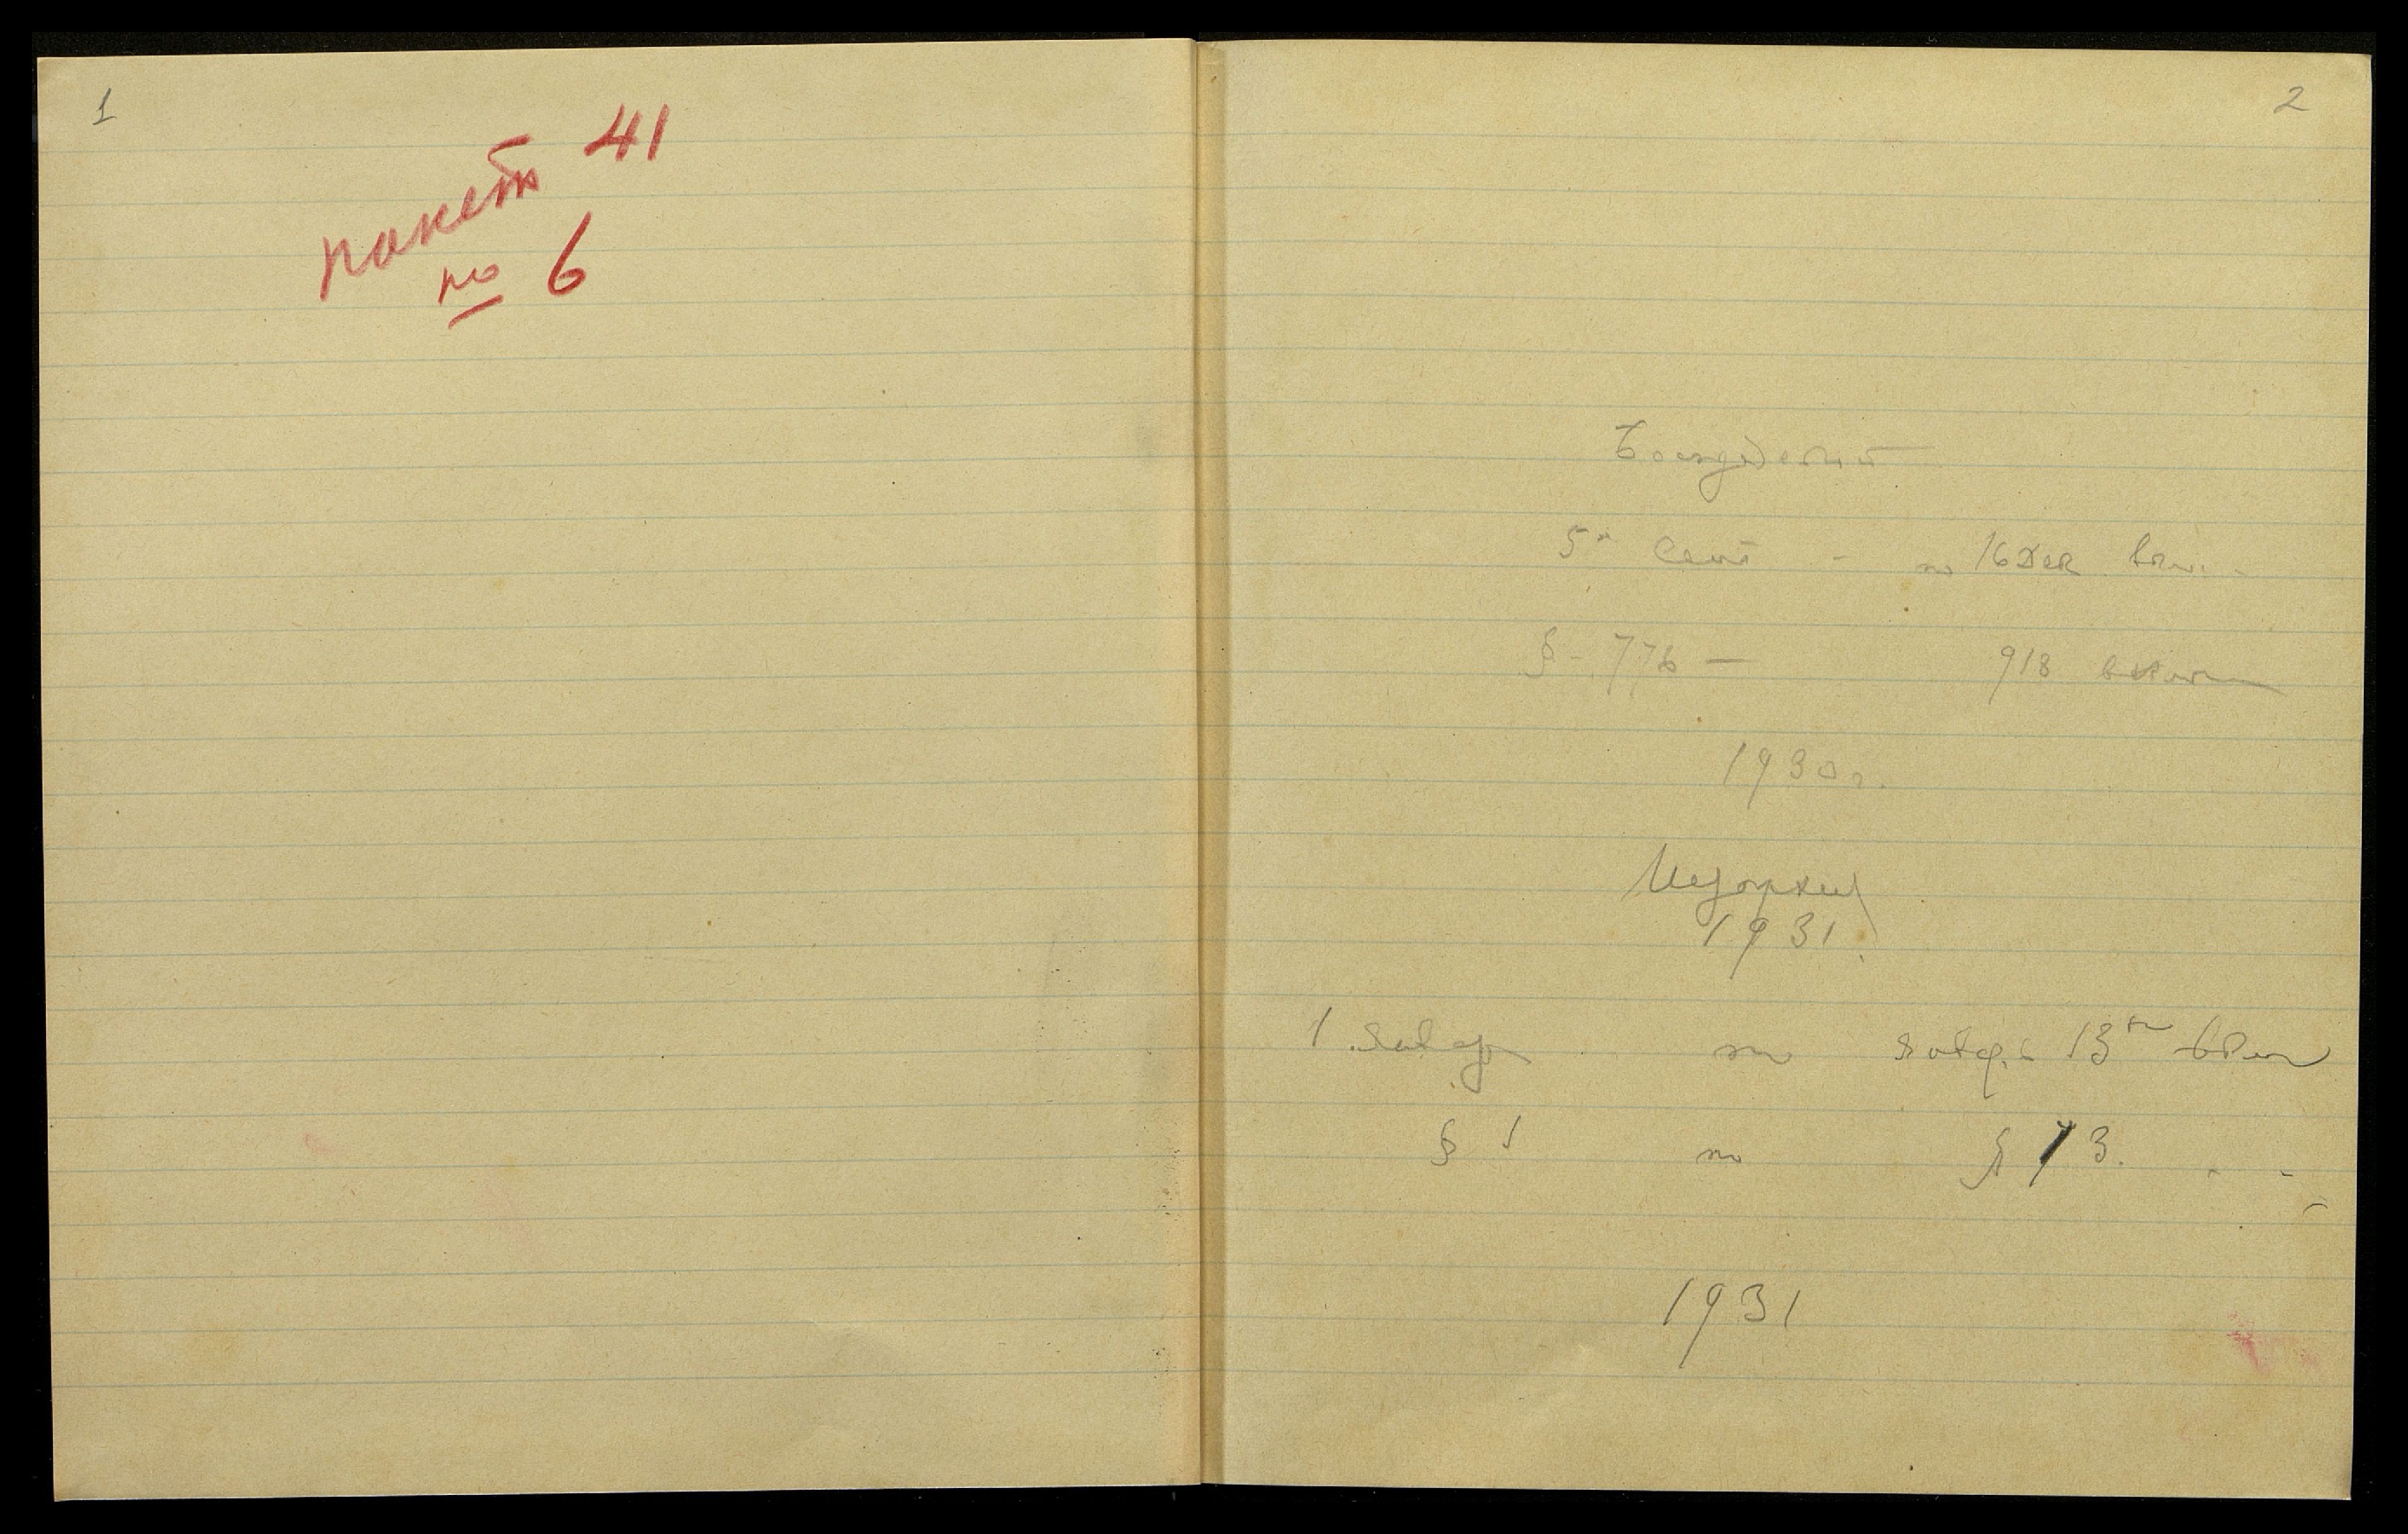 1
пакет 41
№ 6
2
5го Сент - по 16 Дек вкл.
§ - 776 — 918 включ
1930 г.
1931.
1 Январ по Январ. 13го вкл
§ 1 по § 73.
1931